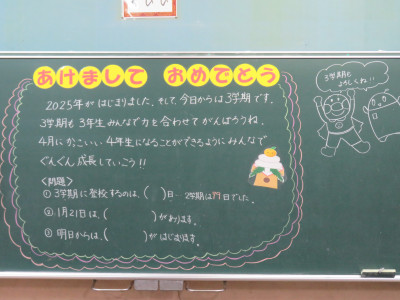 あけまして おめでとう
2025年が はじまりました。そして、今日からは3学期です。
3学期も 3年生 みんなで力を合わせて がんばろうね。
4月に かっこいい 4年生になることができるように みんなで
ぐんぐん 成長していこう!!
<問題>
① 3学期に登校するのは、( )日…2学期は77日でした。
② 1月21日は、( )があります。
③ 明日からは、( )がはじまります。
3学期も
よろしくね!!